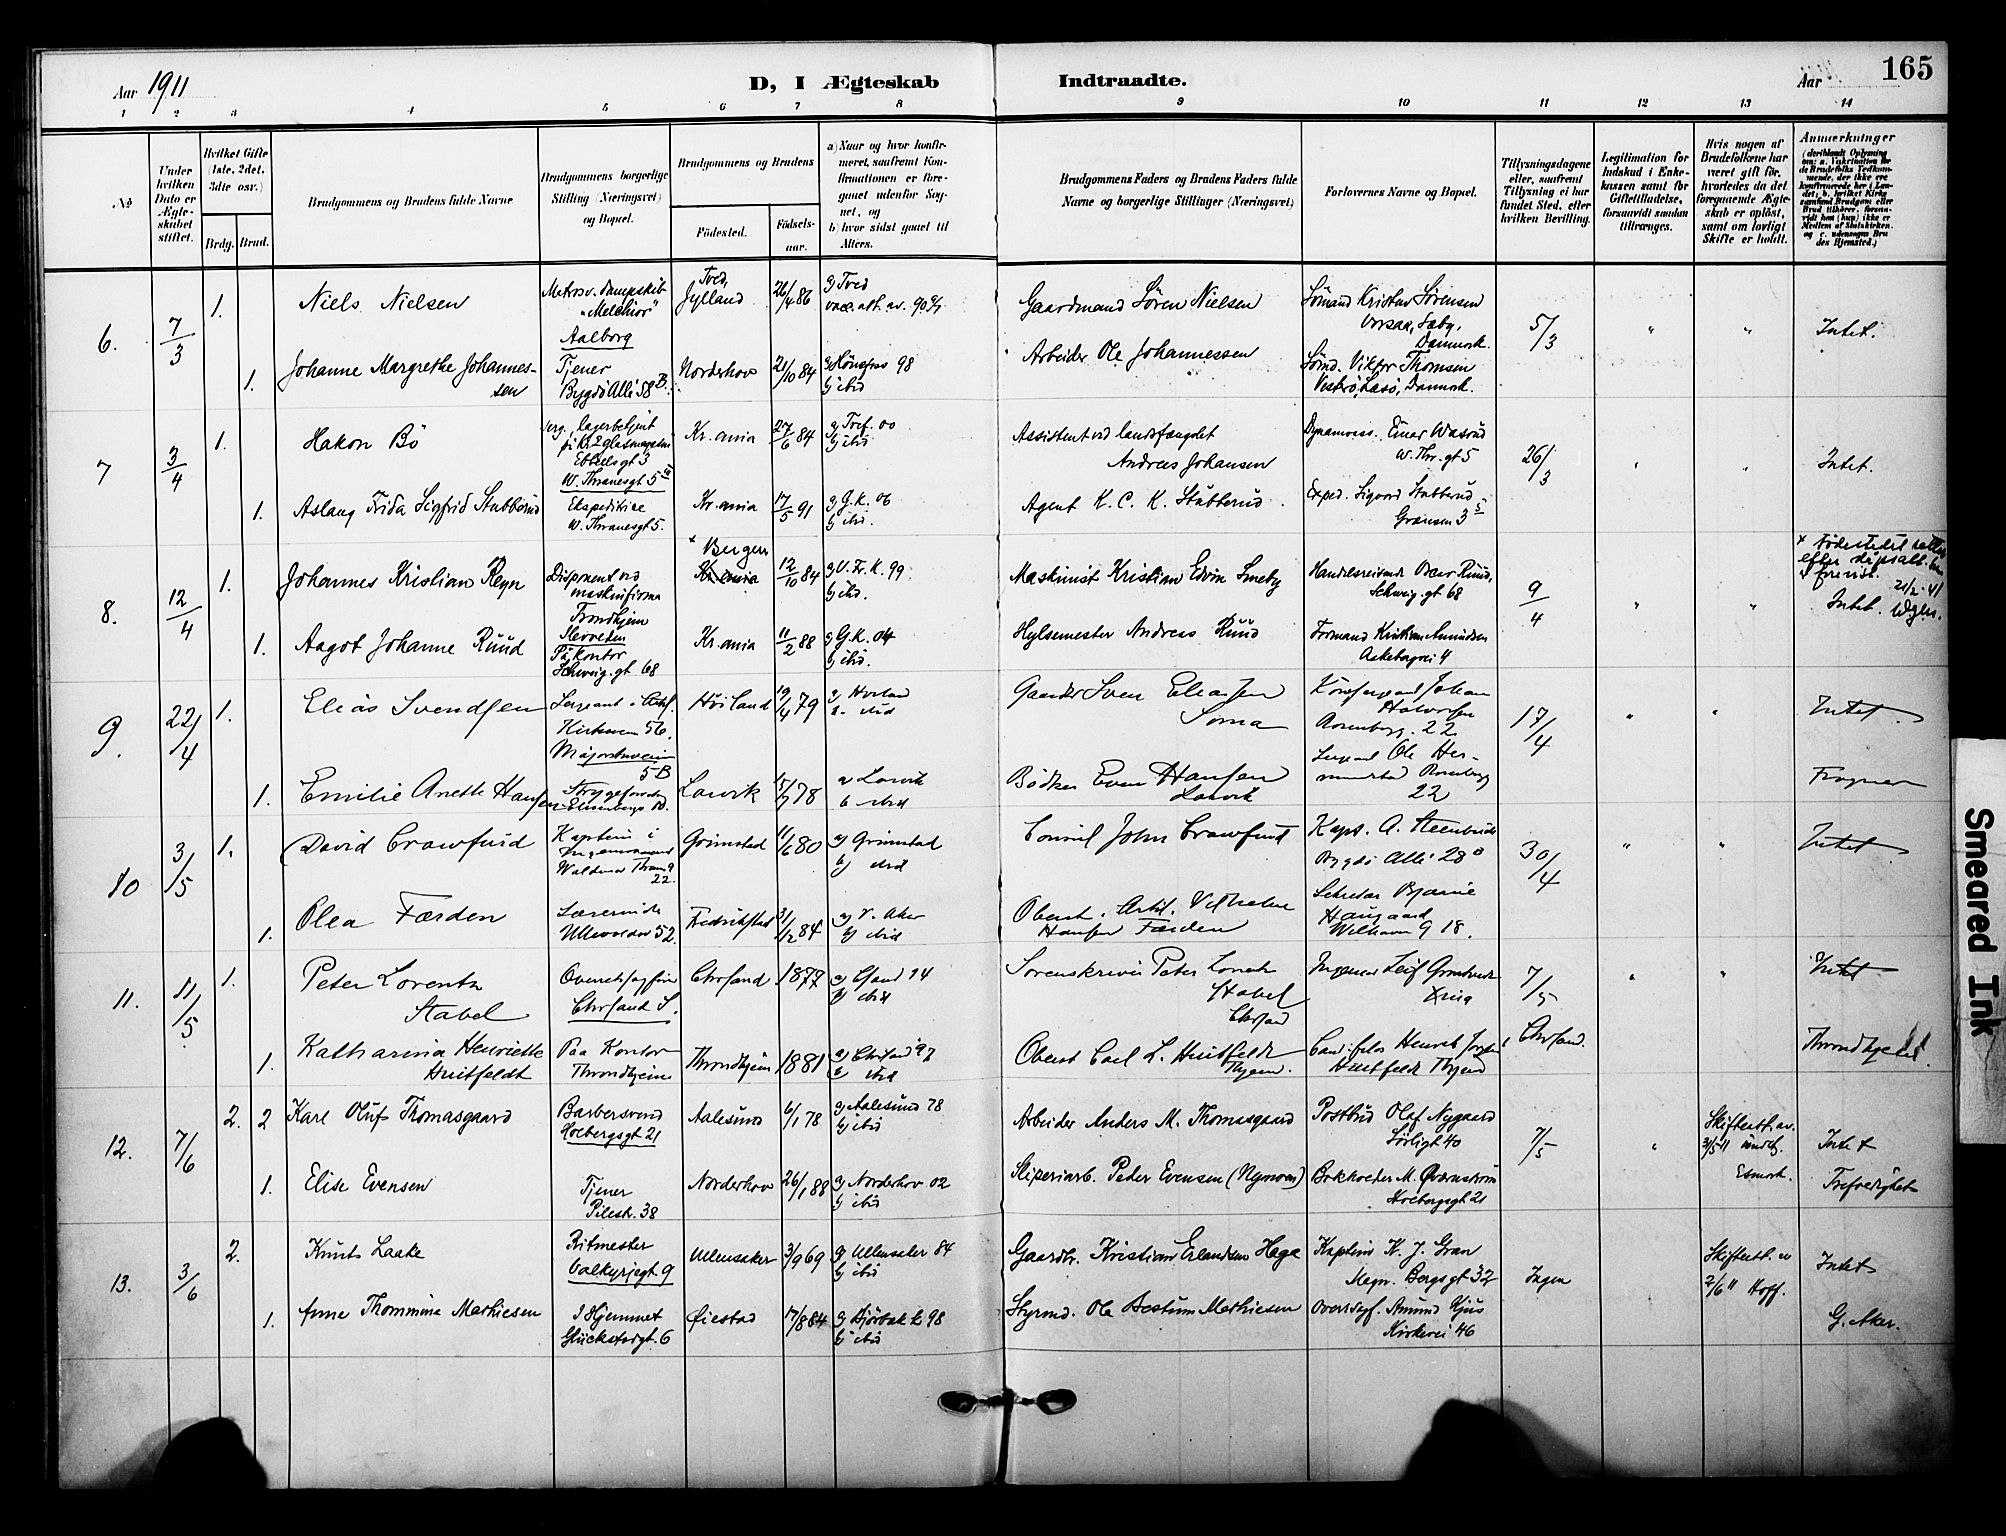 165
Aar 1911
D, I Ægteskab Indtraadte.
Aar
1 2 3 4 5 6 7 8 9 10 11 12 13 14
No
Under hvilken Dato er Ægteskabet stiftet.
Hvilket Gifte (1ste, 2det, 3die osv.)
Brdg. Brud.
Brudgommens og Brudens fulde Navne
Brudgommens borgerlige Stilling (Næringsvei) og Bopæl.
Brudgommens og Brudens
Fødested. Fødselsaar.
a) Naar og hvor konfirmeret, saafremt Konfirmationen er foregaaet udenfor Sognet, og
b) hvor sidst gaaet til Alters.
Brudgommens Faders og Brudens Faders fulde Navne og borgerlige Stillinger (Næringsvei)
Forlovernes Navne og Bopæl.
Tillysningsdagene eller, saafremt Tillysning ei har fundet Sted, efter hvilken Bevilling.
Legitimation for Indskud i Enkekassen samt for Giftetilladelse, forsaavidt saadan tiltrænges.
Hvis nogen af Brudefolkene har været gift før, hvorledes da det foregaaende Ægteskab er opløst, samt om lovligt Skifte er holdt.
Anmerkninger
6. 7/3 1. Niels Nielsen
Matros v. dampskib "Melchior" Aalborg
Tved, Jylland 26/4 86 a) Tved
Gaardmand Sören Nielsen
Sömand Kristen Sörensen
Danmark.
5/3 " " Intet.
1. Johanne Margrethe Johannessen
Tjener Bygdö Allé 58 B.
Norderhov 21/10 84 a) Hönefos 98 b) ibid
Arbeider Ole Johannessen
Sömd. Viktor Thomsen
Læsö, Danmark.
7 3/4 1. Hakon Bö
W. Thranesgt 5
Kr.ania 27/6 84 a) Tref. 00 b) ibid
Assistent ved landsfængslet Andreas Johansen
W. Thr. gt 5
26/3 " " Intet.
1. Aslaug Frida Sigfrid Stubberud
Ekspeditrice W. Thranesgt 5.
Kr.ania 17/5 91 a) G.k. 06 b) ibid.
Agent K. C. K. Stubberud
Exped. Sigurd Stubberud
Grænsen 3
8. 12/4 1. Johannes Kristian Regn
Disponent ved maskinfirma Trondhjem
x Bergen Kr.ania 12/10 84 a) V. Fr. K. 99 b) ibid.
Maskinist Kristian Edvin Smeby
Handelsreisende Oscar Ruud, Schweig. gt 68
9/4 " "
x Födestedet rettet efter dåpsatt.
Intet.
1. Aagot Johanne Ruud
På kontor Schweig. gt 68
Kr.ania 11/2 88 a) G.k. 04 b) ibid.
Hylsemester Andreas Ruud
Formand Kristian Amundsen
9. 22/4 1. Elias Svendsen
Sergeant
Kirkeveien 56. Majorstuveien 5 B
Höiland 19/4 79 a) Höiland b. ibid
Gaardbr Sven Eliassen Soma
Johan Halvorsen Rosenborg. 22
17/4 " " Intet.
1. Emilie Anette Hansen
Larvik 15/7 78 a) Larvik b. ibid
Bödker Even Hansen Larvik
Sergeant Ole
22
Frogner
10 3/5 1. David Crawfurd
Kaptein i
22.
Grimstad 11/6 80 a) Grimstad b) ibid
Consul John Crawfurd
Kapt. A. Steenbuch Bygdö Allé 28
30/4 " " Intet.
1. Olea Færden
Lærerinde Ullevoldsv 52.
Fredrikstad 31/12 84 a) V. Aker b) ibid
Oberst i Artil. Vilhelm Hansen Færden
Sekretær Bjarne Haugaard
18.
11. 11/5 1. Peter Lorentz Stabel
Overretssagförer Chrsand S.
Chrsand 1877 a) Csand 94 b) ibid
Sorenskriver Peter Lorentz Stabel Chrsand
Ingeniör Leif
Xnia
7/5 " " Intet
1. Katharina Henriette Huitfeldt
Paa Kontor Throndhjem
Throndhjem 1881 a) Chrsand 97 b) ibid
Oberst Carl L. Huitfeldt Thjem.
Henrik Jörgen Huitfeldt
Chrsand.
Throndhjem
12. 7/6 2. 2 Karl Oluf Thomasgaard
Barbersvend Holbergsgt 21
Aalesund 6/1 78 a) Aalesund b) ibid
Arbeider Anders M. Thomasgaard
Postbud Olaf Nygaard Sörligt 40
7/5 " Skifteatt. av 31/5 11 Intet
1. Elise Evensen
Tjener Pilestr. 38
Norderhov 26/1 88 a) Norderhov 02 b) ibid
Sliperiarb. Peder Evensen (Nymoen)
Bokholder M. Holbergsgt 21
Trefoldighet
13. 3/6 2. Knut Laake
Ritmester Valkyrjegt. 9
Ullensaker 3/9 69 a) Ullensaker 84 b) ibid
Gaardbr. Kristian Erlandsen Haga
Kaptein K. J. Gran Magn. Bergsgt 32
Ingen
Skifteatt. av 2/6 11 Hoff.
Intet
1. Anne Thommine Mathiesen
I Hjemmet Glückstadgt. 6
Öiestad 17/8 84 a) Björbekk 98 b) ibid
Styrmd. Ole Bestum Mathiesen
Overrsagf. Amund Kjus Kirkevei 46
G. Aker.
Smeared Ink